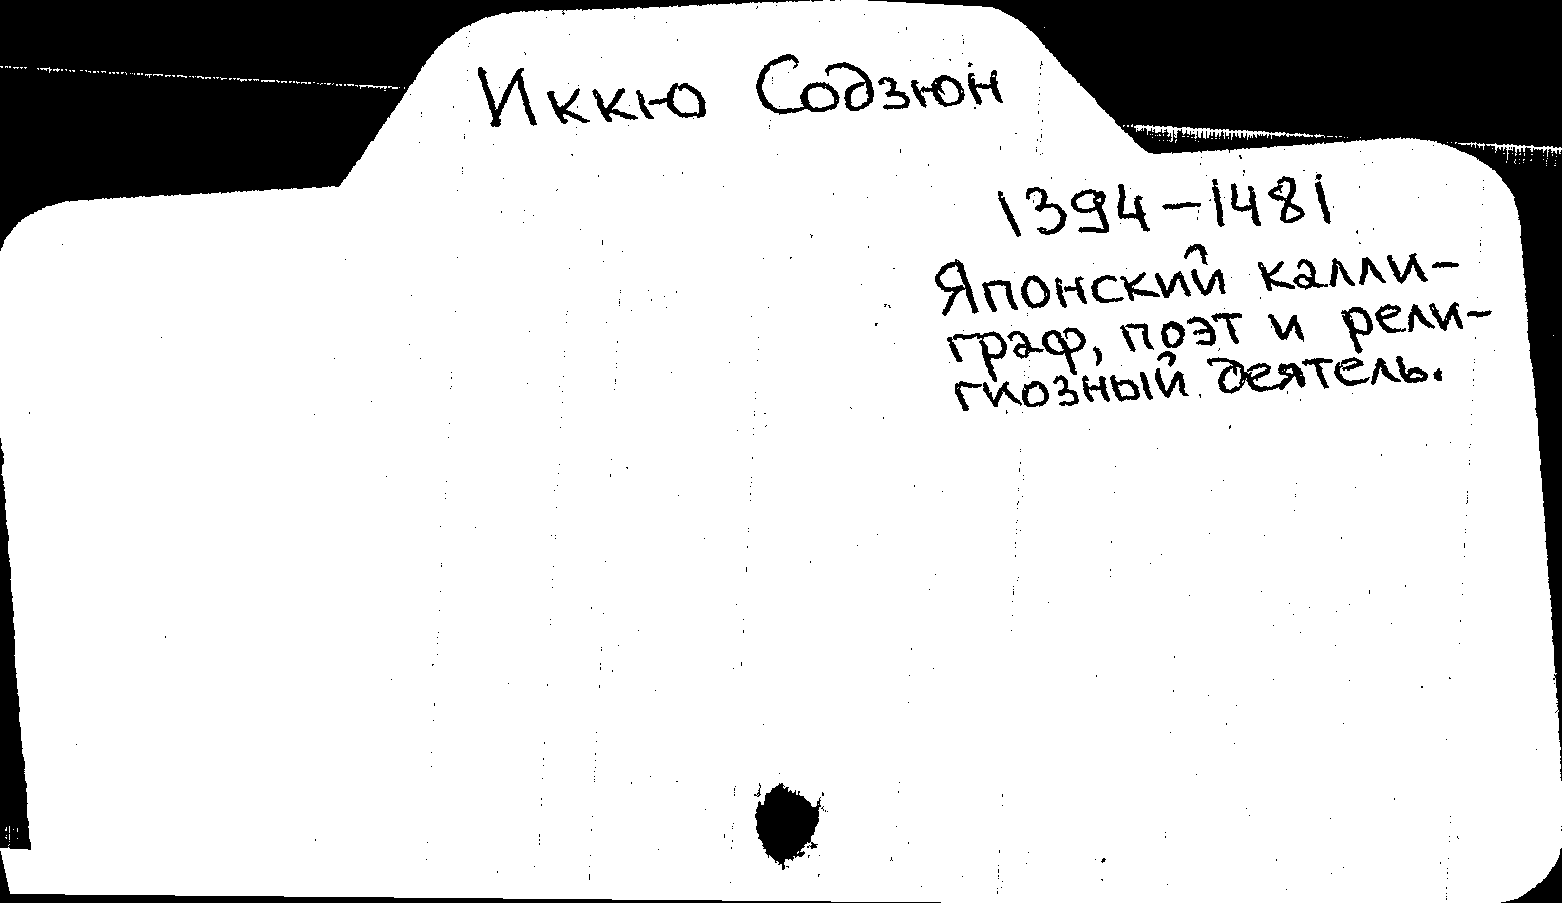 Иккю Содзюн
1394-1481
Японский калли-
граф, поэт и рели-
гиозный деятель.